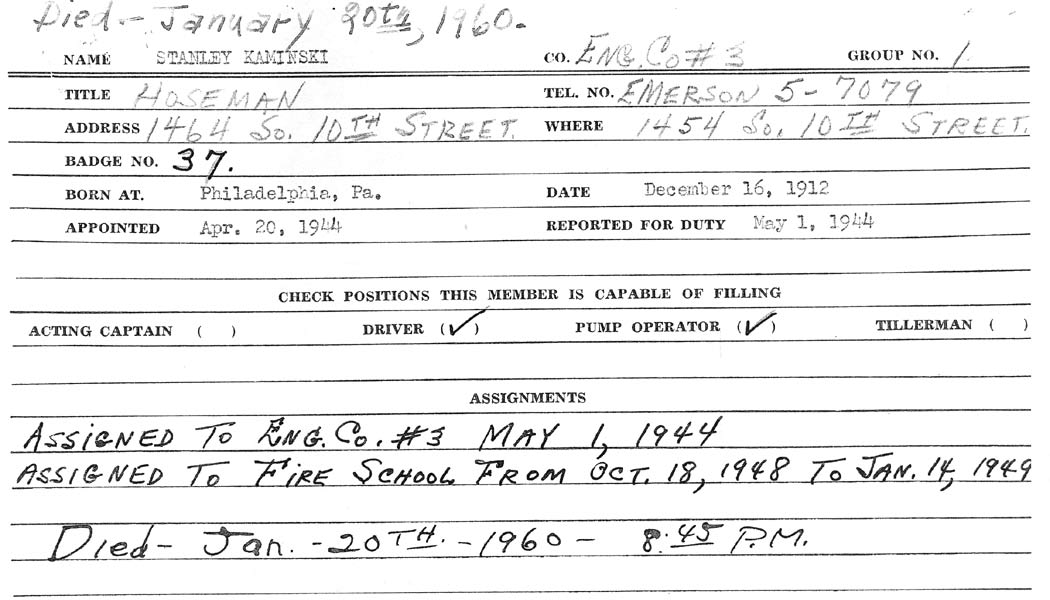 Died - January 20th, 1960.
NAME STANLEY KAMINSKI CO. ENG. Co # 3 GROUP NO. 1.
TITLE HOSEMAN TEL. NO. EMERSON 5-7079
ADDRESS 1464 So. 10TH STREET. WHERE 1454 So. 10TH STREET.
BADGE NO. 37.
BORN AT. Philadelphia, Pa. DATE December 16, 1912
APPOINTED Apr. 20, 1944 REPORTED FOR DUTY May 1, 1944
CHECK POSITIONS THIS MEMBER IS CAPABLE OF FILLING
ACTING CAPTAIN ( ) DRIVER (✓) PUMP OPERATOR (✓) TILLERMAN ( )
ASSIGNMENTS
ASSIGNED TO ENG. Co. #3 MAY 1, 1944
ASSIGNED TO FIRE SCHOOL FROM OCT. 18, 1948 TO JAN. 14, 1949
Died - Jan. - 20TH. - 1960 - 8:45 P.M.